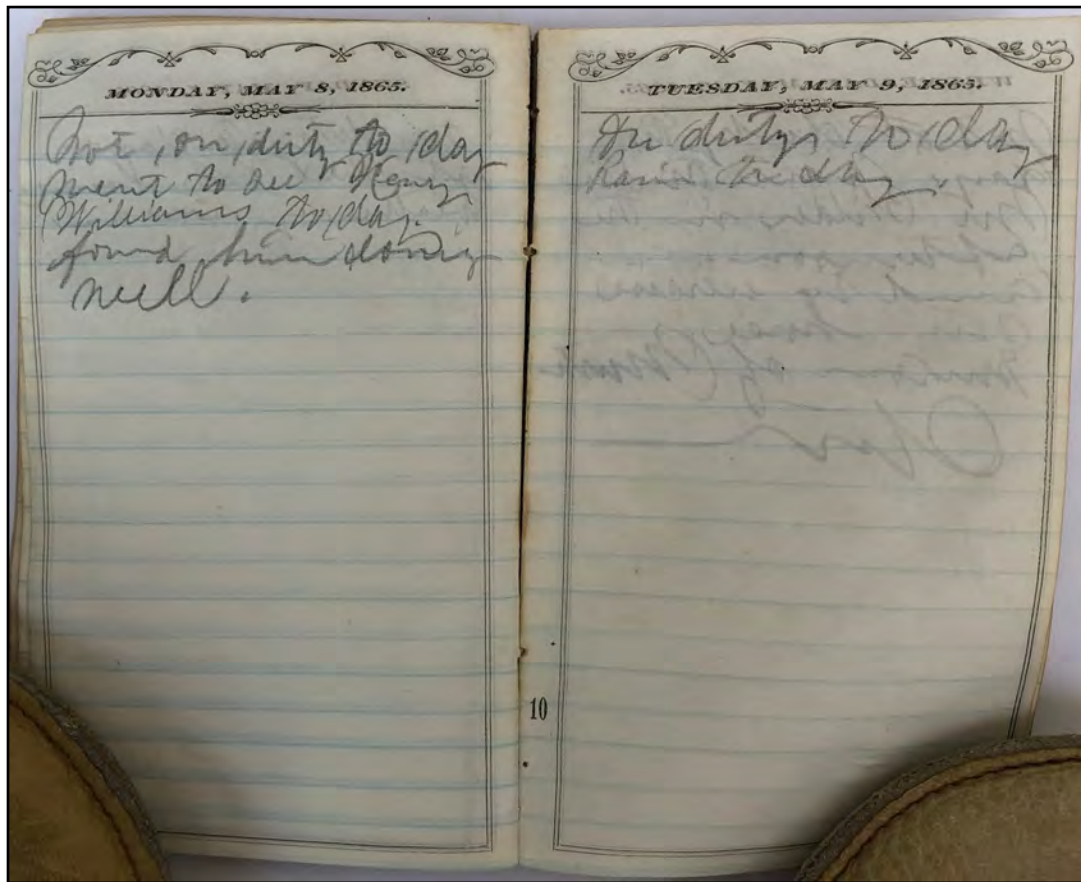 MONDAY, MAY 8, 1865.
Not on duty to day
went to see Henry
Williams to day.
found him doing
well.
TUESDAY, MAY 9, 1865.
On duty to day
Rain to day.
10